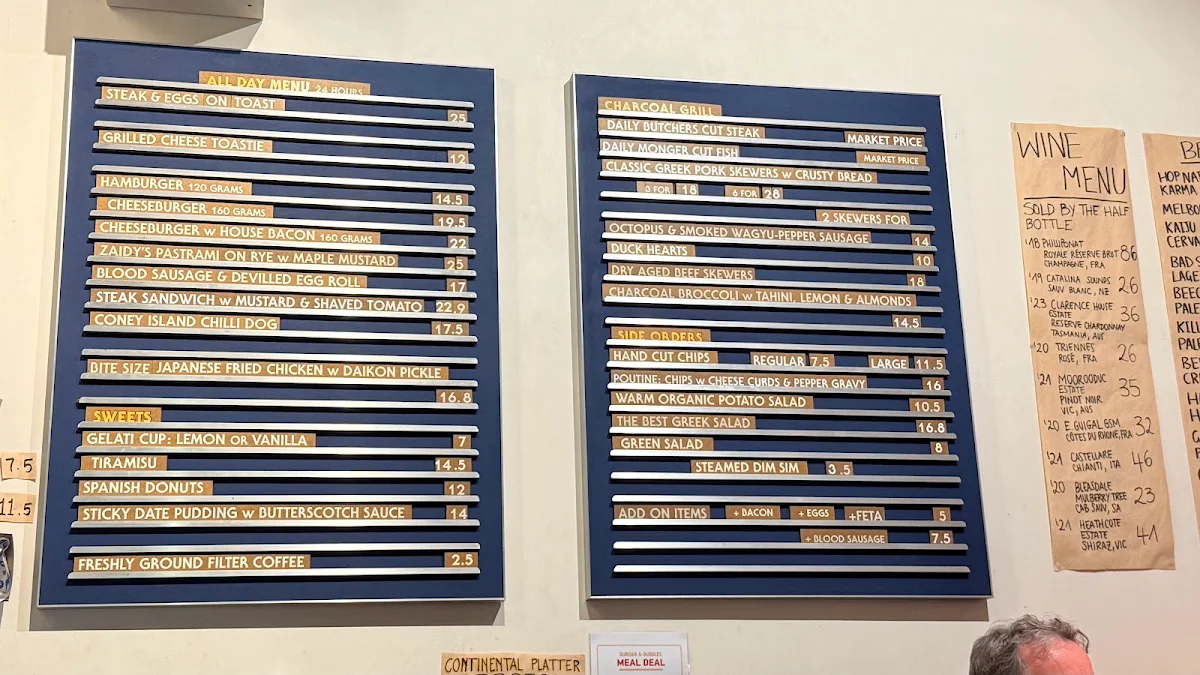 ALL DAY MENU 24 HOURS
STEAK & EGGS ON TOAST
25
GRILLED CHEESE TOASTIE
12
HAMBURGER 120 GRAMS
14.5
CHEESEBURGER 160 GRAMS
19.5
CHEESEBURGER w HOUSE BACON 160 GRAMS 22
ZAIDY'S PASTRAMI ON RYE w MAPLE MUSTARD 25
BLOOD SAUSAGE & DEVILLED EGG ROLL 17
STEAK SANDWICH w MUSTARD & SHAVED TOMATO 22,9
CONEY ISLAND CHILLI DOG 17.5
BITE SIZE JAPANESE FRIED CHICKEN w DAIKON PICKLE
16.8
SWEETS
GELATI CUP: LEMON OR VANILLA 7
TIRAMISU 14.5
SPANISH DONUTS 12
STICKY DATE PUDDING w BUTTERSCOTCH SAUCE 14
FRESHLY GROUND FILTER COFFEE 2.5
CHARCOAL GRILL
DAILY BUTCHERS CUT STEAK MARKET PRICE
DAILY MONGER CUT FISH MARKET PRICE
CLASSIC GREEK PORK SKEWERS w CRUSTY BREAD
3 FOR 18 6 FOR 28
2 SKEWERS FOR
OCTOPUS & SMOKED WAGYU-PEPPER SAUSAGE 14
DUCK HEARTS 10
DRY AGED BEEF SKEWERS 18
CHARCOAL BROCCOLI w TAHINI, LEMON & ALMONDS
14.5
SIDE ORDERS
HAND CUT CHIPS REGULAR 7.5 LARGE 11.5
POUTINE: CHIPS w CHEESE CURDS & PEPPER GRAVY 16
WARM ORGANIC POTATO SALAD 10.5
THE BEST GREEK SALAD 16.8
GREEN SALAD 8
STEAMED DIM SIM 3.5
ADD ON ITEMS + BACON + EGGS +FETA 5
+ BLOOD SAUSAGE 7.5
WINE
MENU
SOLD BY THE HALF
BOTTLE
'18 PHILLIPONAT
ROYALE RÉSERVE BRUT 86
CHAMPAGNE, FRA
'19 CATALINA SOUNDS
SAUV BLANC, NZ 26
'23 CLARENCE HOUSE
ESTATE 36
RESERVE CHARDONNAY
TASMANIA, AUS
'20 TRIENNES
ROSÉ, FRA 26
'21 MOOROODUC
ESTATE 35
PINOT NOIR
VIC, AUS
'20 E. GUIGAL GSM 32
CÔTES DU RHÔNE, FRA
'21 CASTELLARE 46
CHIANTI, ITA
'20 BLEASDALE
MULBERRY TREE 23
CAB SAUV, SA
'21 HEATHCOTE
ESTATE 41
SHIRAZ, VIC
HOP NAT
KARMA
MELBO
KAIJU
CERVA
BAD S
LAGE
BEEC
PALE
KILL
PALE
7.5
11.5
CONTINENTAL PLATTER
BURGER & BUBBLES
MEAL DEAL